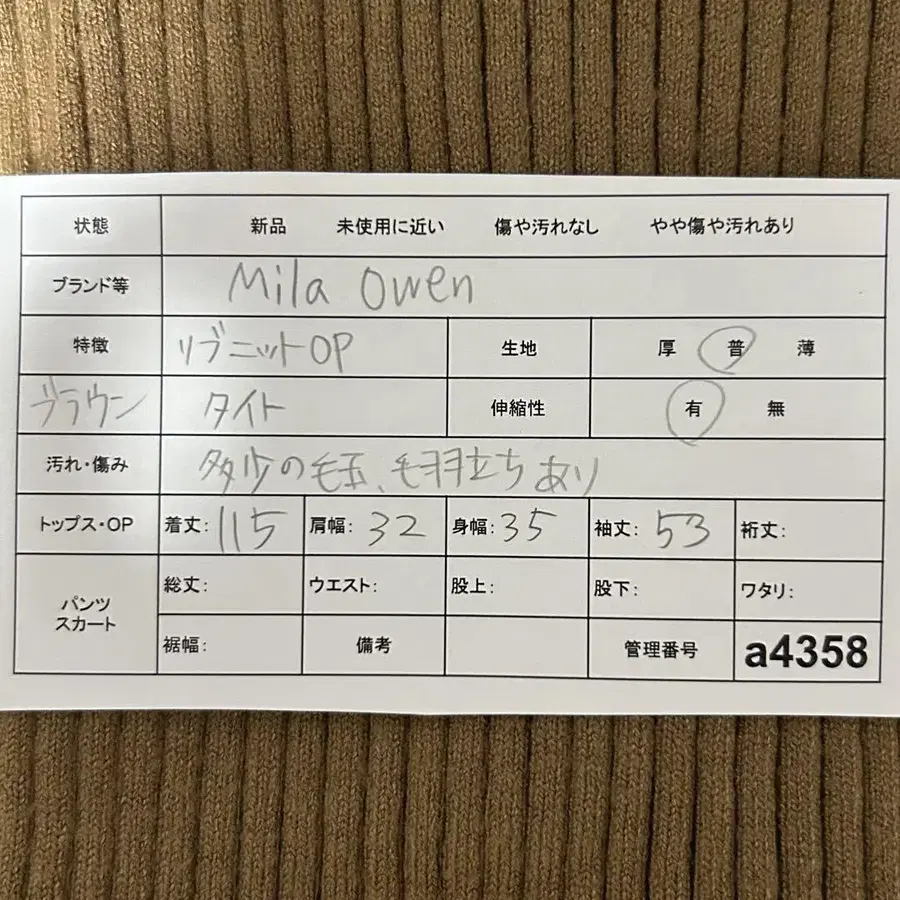 状態 新品 未使用に近い 傷や汚れなし やや傷や汚れあり
ブランド等 Mila Owen
特徴 リブニットOP 生地 厚 普 薄
ブラウン タイト 伸縮性 有 無
汚れ・傷み 多少の毛玉、毛羽立ちあり
トップス・OP 着丈: 115 肩幅: 32 身幅: 35 袖丈: 53 裄丈:
パンツ スカート 総丈: ウエスト: 股上: 股下: ワタリ:
裾幅: 備考 管理番号 a4358